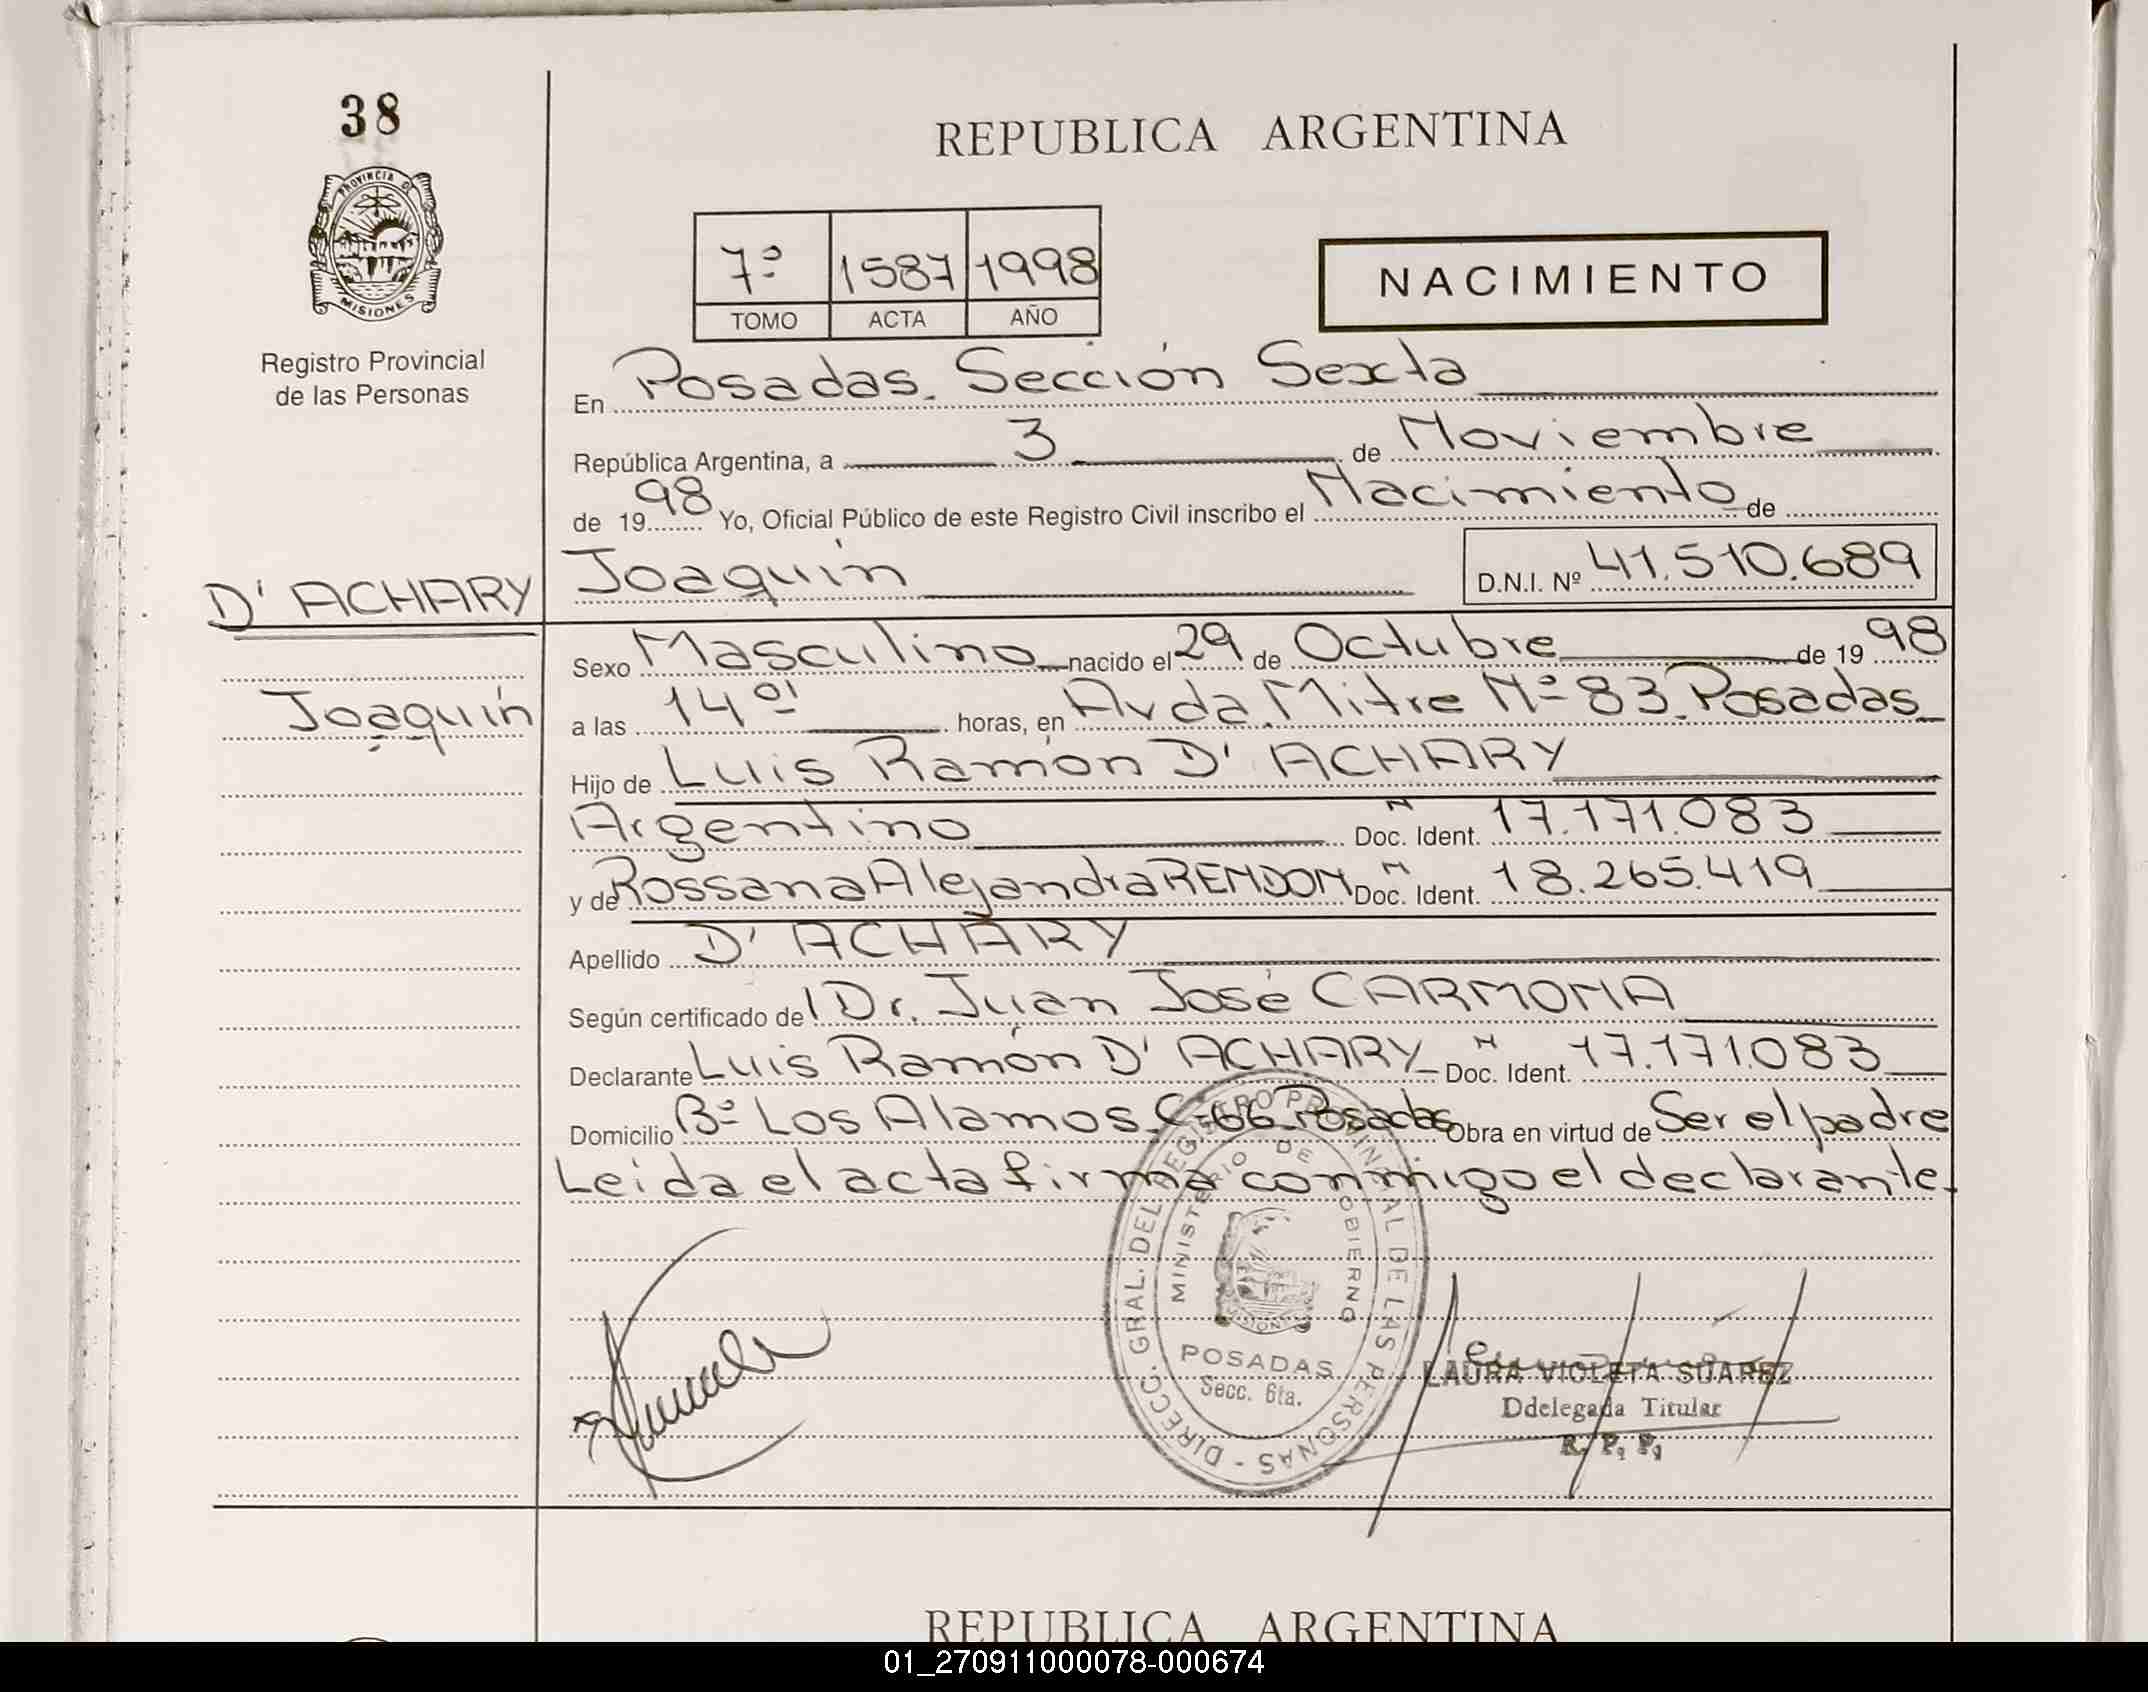 38
PROVINCIA DE
MISIONES
Registro Provincial
de las Personas
REPUBLICA ARGENTINA
7º 1587 1998
TOMO ACTA AÑO
NACIMIENTO
En Posadas. Sección Sexta
República Argentina, a 3 de Noviembre
de 1998 Yo, Oficial Público de este Registro Civil inscribo el Nacimiento de
D' ACHARY Joaquín D.N.I. Nº 41.510.689
Sexo Masculino nacido el 29 de Octubre de 1998
Joaquín a las 14º' horas, en Avda. Mitre Nº 83. Posadas
Hijo de Luis Ramón D' ACHARY
Argentino Doc. Ident. N 17.171.083
y de Rossana Alejandra RENDON Doc. Ident. N 18.265.419
Apellido D' ACHARY
Según certificado del Dr. Juan José CARMONA
Declarante Luis Ramón D' ACHARY Doc. Ident. N 17.171.083
Domicilio Bº Los Alamos. C-66. Posadas Obra en virtud de Ser el padre
Leída el acta firma conmigo el declarante.
DIRECC. GRAL. DEL REGISTRO PROVINCIAL DE LAS PERSONAS -
MINISTERIO DE GOBIERNO
MISIONES
POSADAS
Secc. 6ta.
LAURA VIOLETA SUAREZ
Ddelegada Titular
R. P. P.
REPUBLICA ARGENTINA
01_270911000078-000674